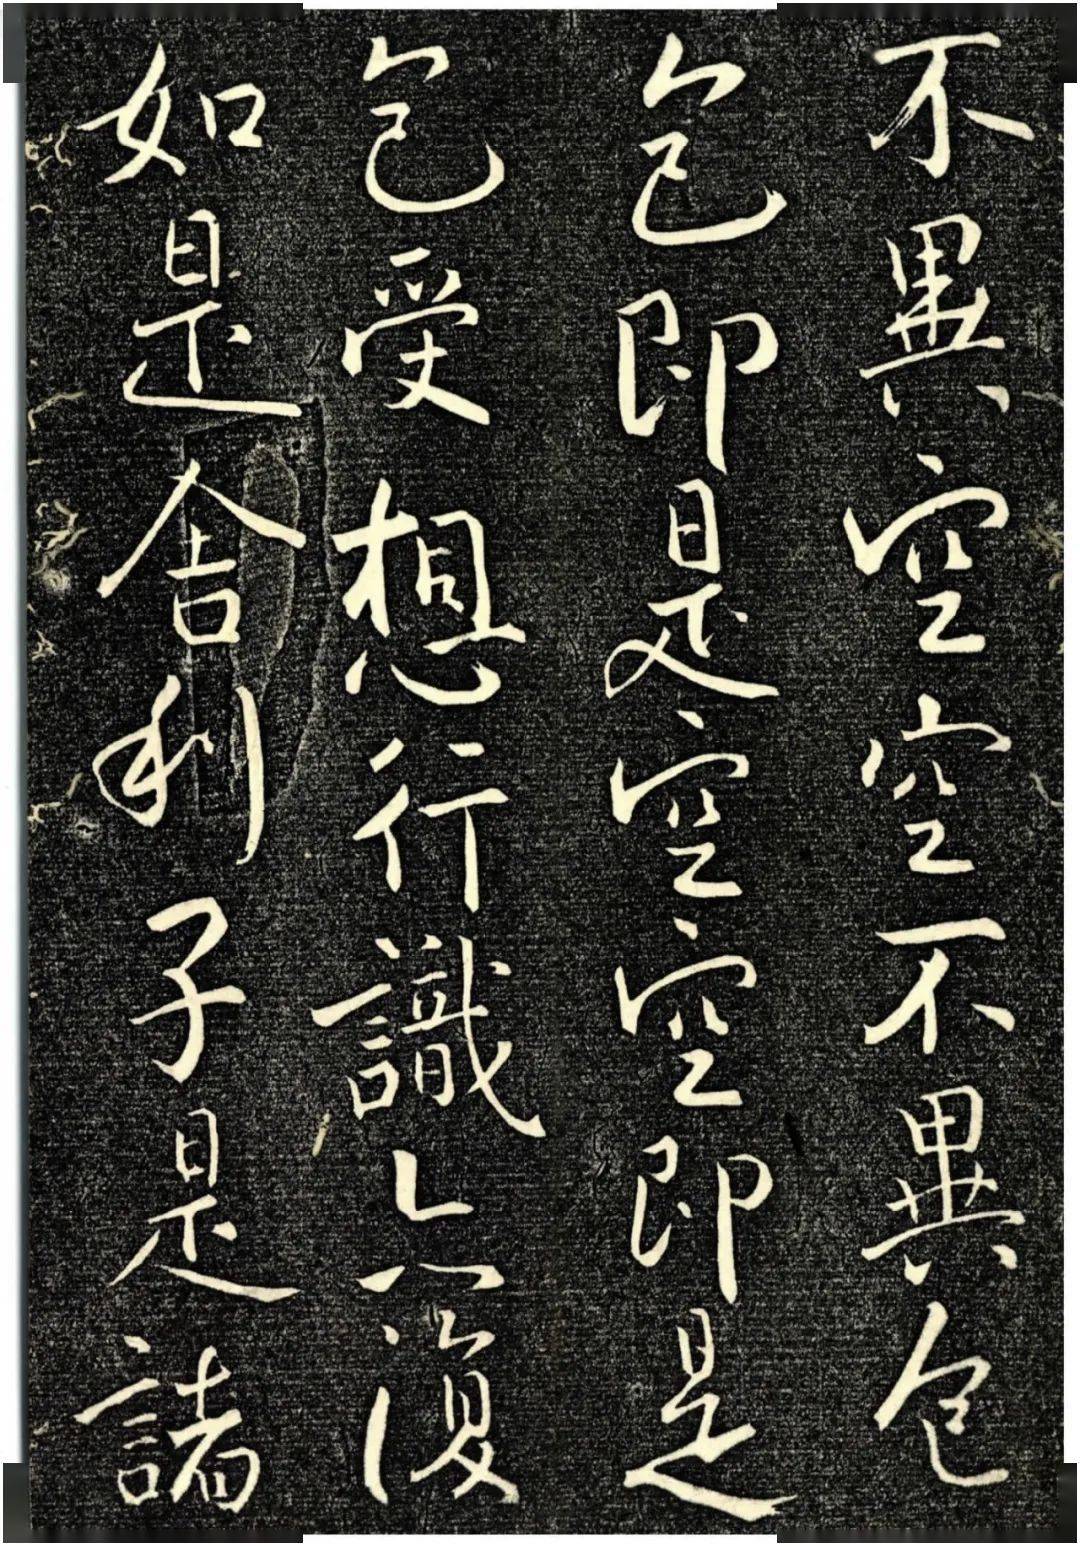 不異空空不異色
色即是空空即是
色受想行識亦復
如是舍利子是諸